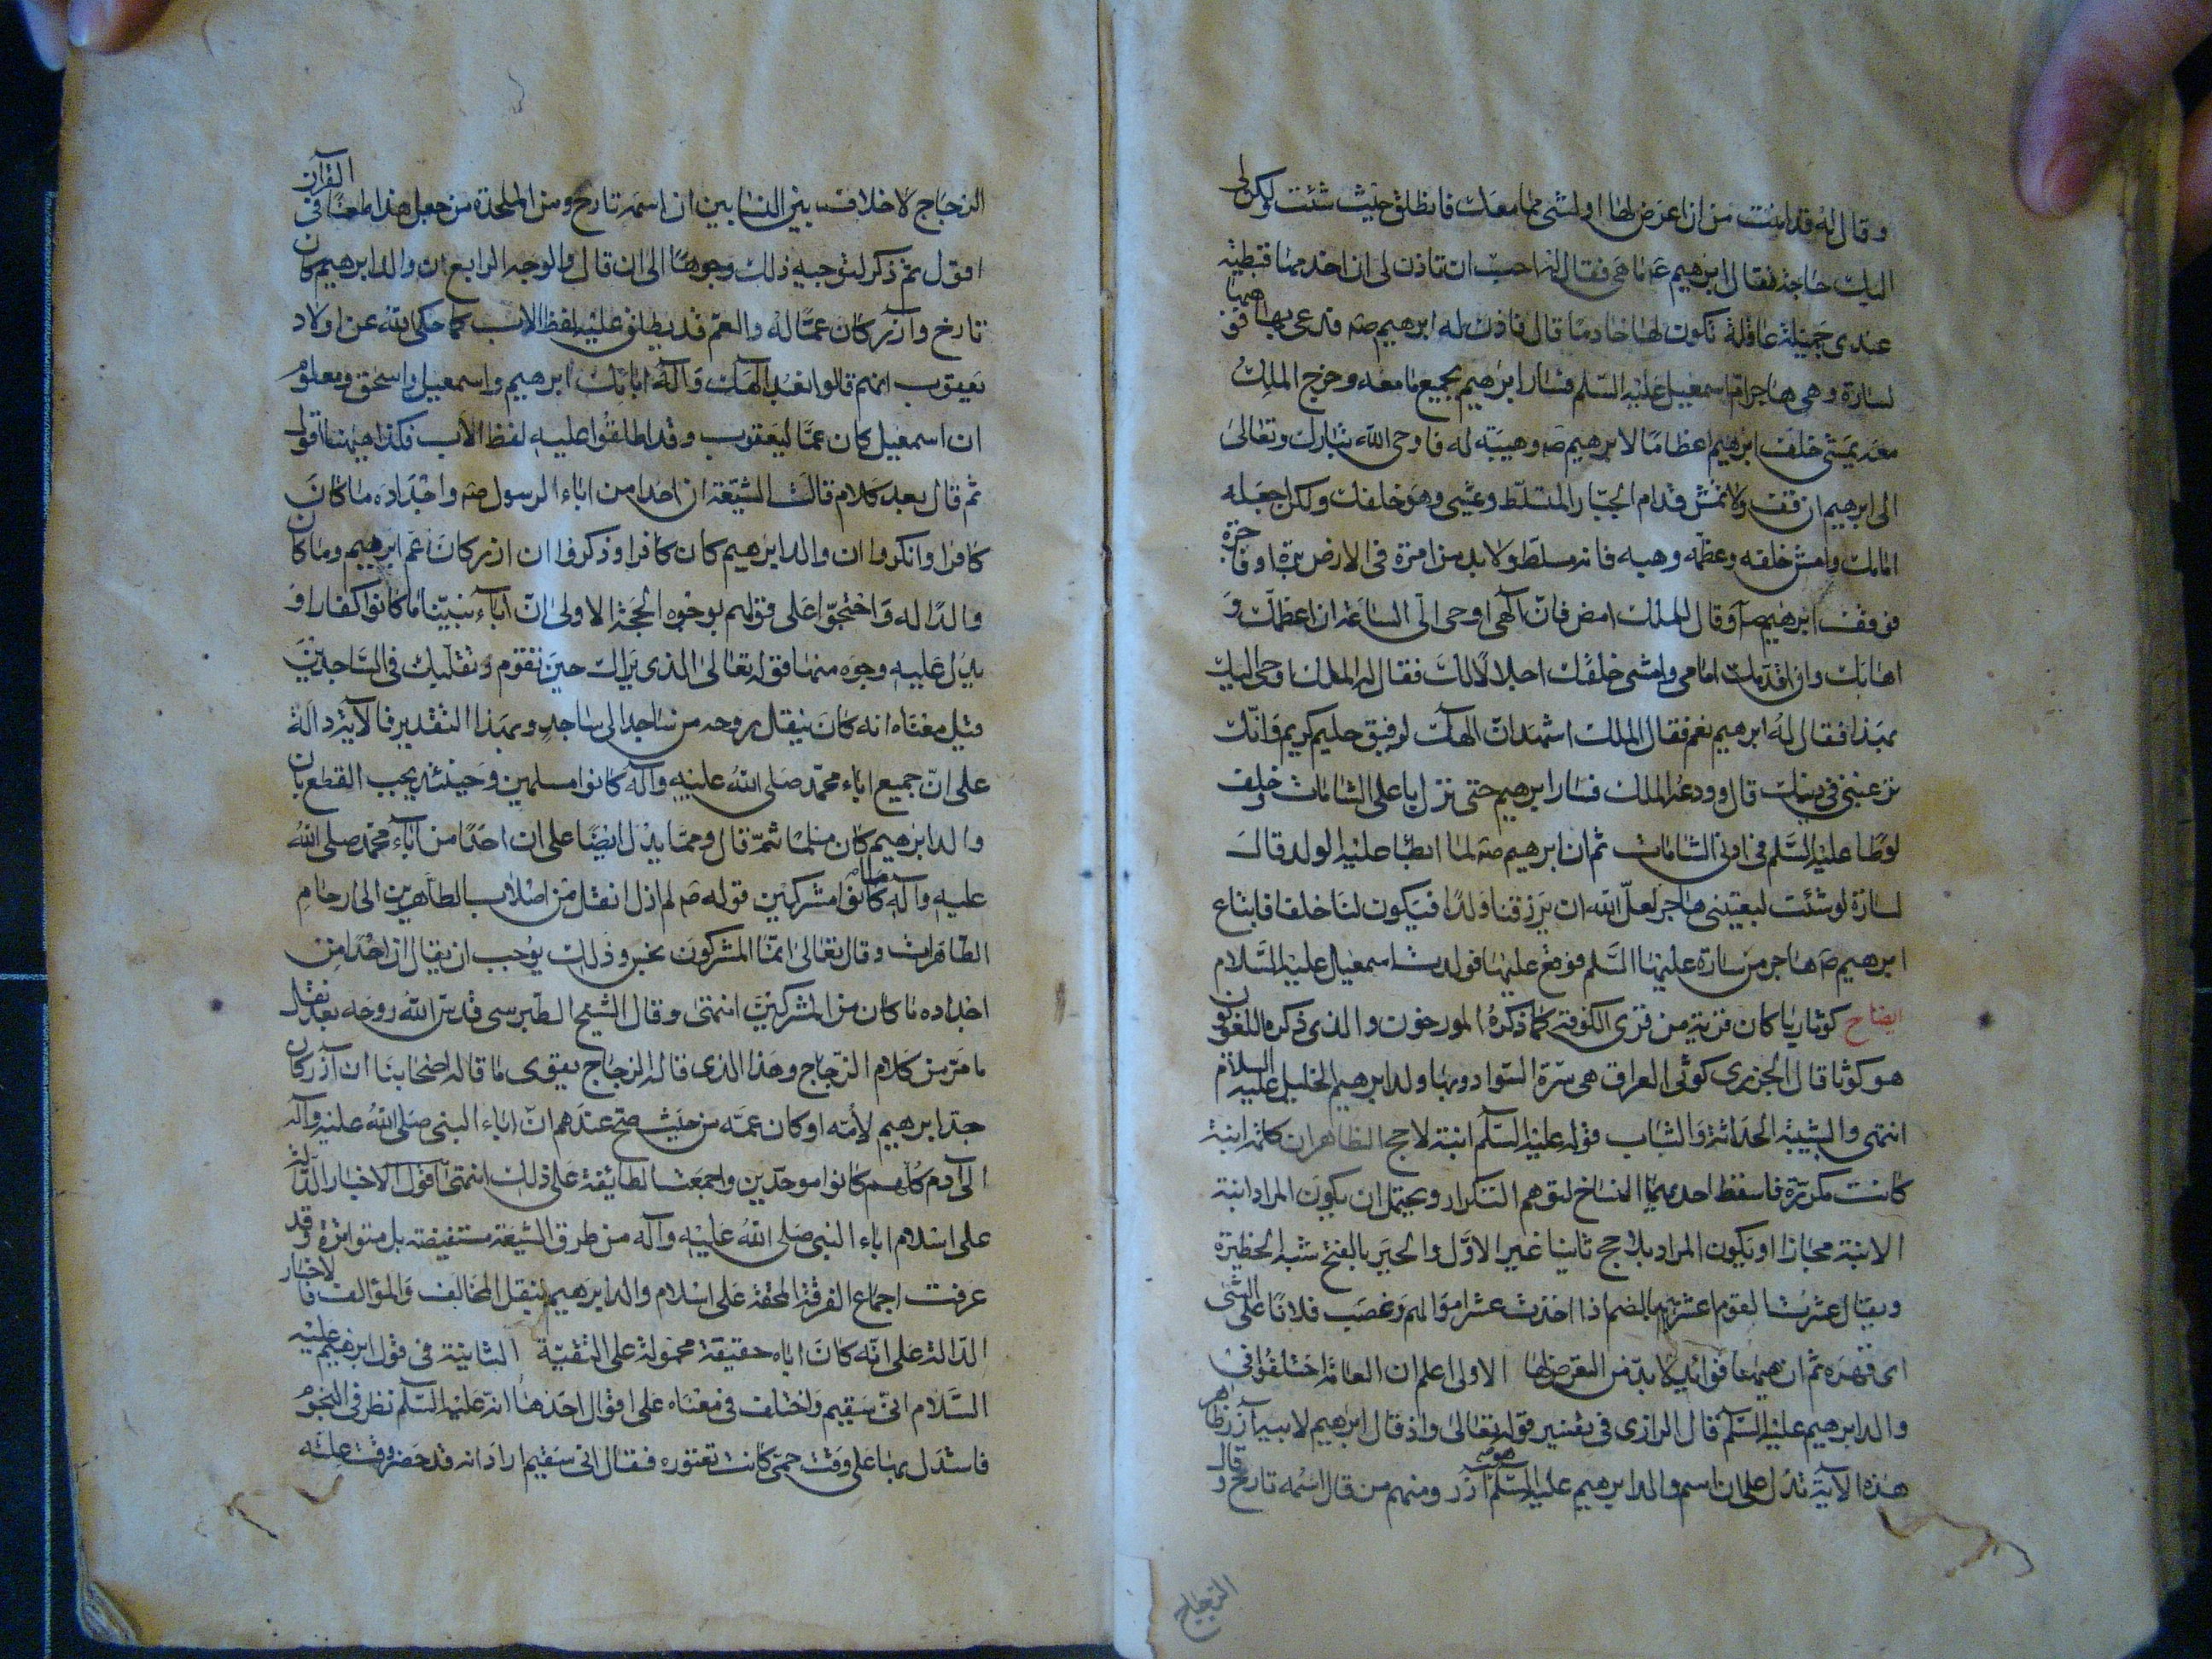 وقال له قد امنت من ان اعرض لها او لشئ مما معك فانطلق حيث شئت ولكن لى
اليك حاجة فقال ابرهيم عم ما هى فقال له احب ان تاذن لى ان اخدمها قبطية
عندى جميلة عاقلة تكون لها خادما قال فاذن له ابرهيم صه فدعى بها فوهبها
لسارة وهى هاجر ام اسمعيل عليه السلم فسار ابرهيم بجميع ما معه وخرج الملك
معه يمشى خلف ابرهيم اعظاما لابرهيم صه وهيبة له فاوحى الله تبارك وتعالى
الى ابرهيم ان قف ولا تمش قدام الجبار المتسلط ويمشى وهو خلفك ولكن اجعله
امامك وامش خلفه وعظمه وهبه فانه مسلط ولا بد من امرة فى الارض برة او فاجرة
فوقف ابرهيم صه وقال للملك امض فان الهى اوحى الى الساعة ان اعظمك و
اهابك وان اقدمك امامى وامشى خلفك اجلالا لك فقال له الملك اوحى اليك
بهذا فقال له ابرهيم نعم فقال الملك اشهد ان الهك لرفيق حليم كريم وانك
ترغبنى فى دينك قال وودعه الملك فسار ابرهيم حتى نزل باعلى الشامات وخلف
لوطا عليه السلم فى ادنى الشامات ثم ان ابرهيم صه لما ابطأ عليه الولد قال
لسارة لو شئت لبعتينى هاجر لعل الله ان يرزقنا ولدا فيكون لنا خلفا فابتاع
ابرهيم صه هاجر من سارة عليهما السلم فوقع عليها فولدت اسمعيل عليه السلام
ايضاح كوثاريا كان قرية من قرى الكوفة كما ذكره المورخون والذى ذكره اللغويون
هو كوثا قال الجزرى كوثى العراق هى سرة السواد وبها ولد ابرهيم الخليل عليه السلام
انتهى والشبيبة الحداثة والشباب قوله عليه السلم ابنة لاحج الظاهر ان كلمة ابنة
كانت مكررة فاسقط احديهما النساخ لتوهم التكرار ويحتمل ان يكون المراد ابنة
الابنة مجازا او يكون المراد بلاحج ثانيا غير الاول والحير بالفتح شبه الحظيرة
ويقال عشرت القوم اعشرهم بالضم اذا اخذت عشر اموالهم وغصب فلانا على الشئ
اى قهره ثم ان هيهنا فوايد لا بد من التعرض لها الاولى اعلم ان العامة اختلفوا فى
والد ابرهيم عليه السلم قال الرازى فى تفسير قوله تعالى واذ قال ابرهيم لابيه آزر ظاهر
هذه الآية تدل على ان اسم والد ابرهيم عليه السلم هو آزر ومنهم من قال اسمه تارخ وقال
الزجاج
الزجاج لا خلاف بين النسابين ان اسمه تارخ ومن الملحدة من جعل هذا طعنا فى القرآن
اقول ثم ذكر لتوجيه ذلك وجوها الى ان قال والوجه الرابع ان والد ابرهيم كان
تارخ وآزر كان عما له والعم قد يطلق عليه لفظ الاب كما حكى الله عن اولاد
يعقوب انهم قالوا نعبد الهك وآله ابائك ابرهيم واسمعيل واسحق ومعلوم
ان اسمعيل كان عما ليعقوب وقد اطلقوا عليه لفظ الاب فكذا هيهنا اقول
ثم قال بعد كلام قالت الشيعة ان احدا من اباء الرسول صه واجداده ما كان
كافرا وانكروا ان والد ابرهيم كان كافرا وذكروا ان ازر كان عم ابرهيم وما كان
والدا له واحتجوا على قولهم بوجوه الحجة الاولى ان آباء نبينا ما كانوا كفارا و
يدل عليه وجوه منها قوله تعالى الذى يراك حين تقوم وتقلبك فى الساجدين
قيل معناه انه كان ينقل روحه من ساجد الى ساجد وبهذا التقدير فالآية دالة
على ان جميع اباء محمد صلى الله عليه وآله كانوا مسلمين وحينئذ يجب القطع بان
والد ابرهيم كان مسلما ثم قال ومما يدل ايضا على ان احدا من آباء محمد صلى الله
عليه وآله ما كانوا مشركين قوله صه لم ازل انقل من اصلاب الطاهرين الى ارحام
الطاهرات وقال تعالى انما المشركون نجس وذلك يوجب ان يقال ان احدا من
اجداده ما كان من المشركين انتهى وقال الشيخ الطبرسى قدس الله روحه بعد نقل
ما مر من كلام الزجاج وهذا الذى قاله الزجاج يقوى ما قاله اصحابنا ان آزر كان
جد ابرهيم لأمه او كان عمه من حيث صح عندهم ان اباء النبى صلى الله عليه وآله
الى آدم كلهم كانوا موحدين واجمعت الطايفة على ذلك انتهى اقول الاخبار الدالة
على اسلام اباء النبى صلى الله عليه وآله من طرق الشيعة مستفيضة بل متواترة وقد
عرفت اجماع الفرقة المحقة على اسلام والد ابرهيم بنقل المخالف والموالف فالاخبار
الدالة على انه كان اباه حقيقة محمولة على التقية الثانية فى قول ابرهيم عليه
السلام انى سقيم واختلف فى معناه على اقوال احدها انه عليه السلم نظر فى النجوم
فاستدل بها على وقت حمى كانت تعتوره فقال انى سقيم اراد انه قد حضر وقت علته